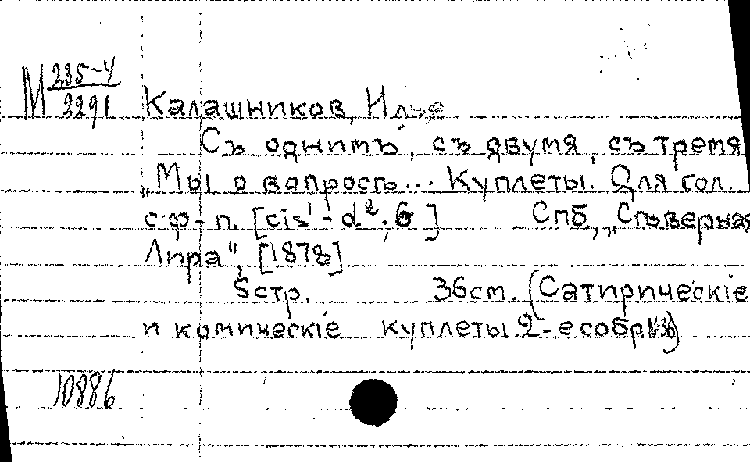 М 235-4/2291
Калашников, Илья
Съ однимъ, съ двумя, съ тремя
„Мы о вопросѣ... Куплеты. Для гол.
с ф-п. [cis¹-d²; G] Спб, „Сѣверная
Лира", [1878]
5 стр. 36 cm. (Сатирическіе
и комическіе куплеты 2-е собр.
10886